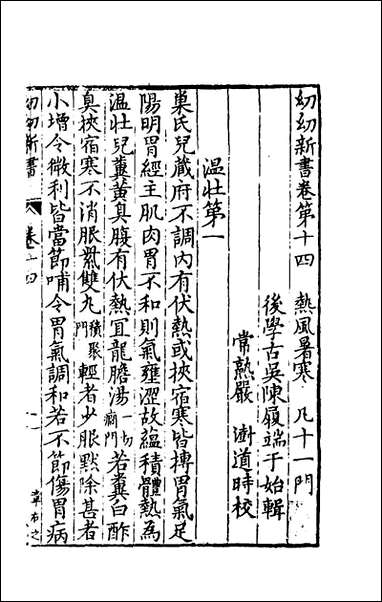 幼幼新書卷第十四　熱風暑寒　凡十一門
後學古吳陳履端于始輯
常熟嚴　澍道時校
温壯第一
巢氏兒藏府不調內有伏熱或挾宿寒皆搏胃氣足
陽明胃經主肌肉胃不和則氣壅澀故蘊積體熱為
温壯兒糞黃臭腹有伏熱宜龍膽湯一切癇門若糞白酢
臭挾宿寒不消服紫雙丸積聚門輕者少服默除甚者
小增令微利皆當節哺令胃氣調和若不節傷胃病
幼幼新書　卷十四　一